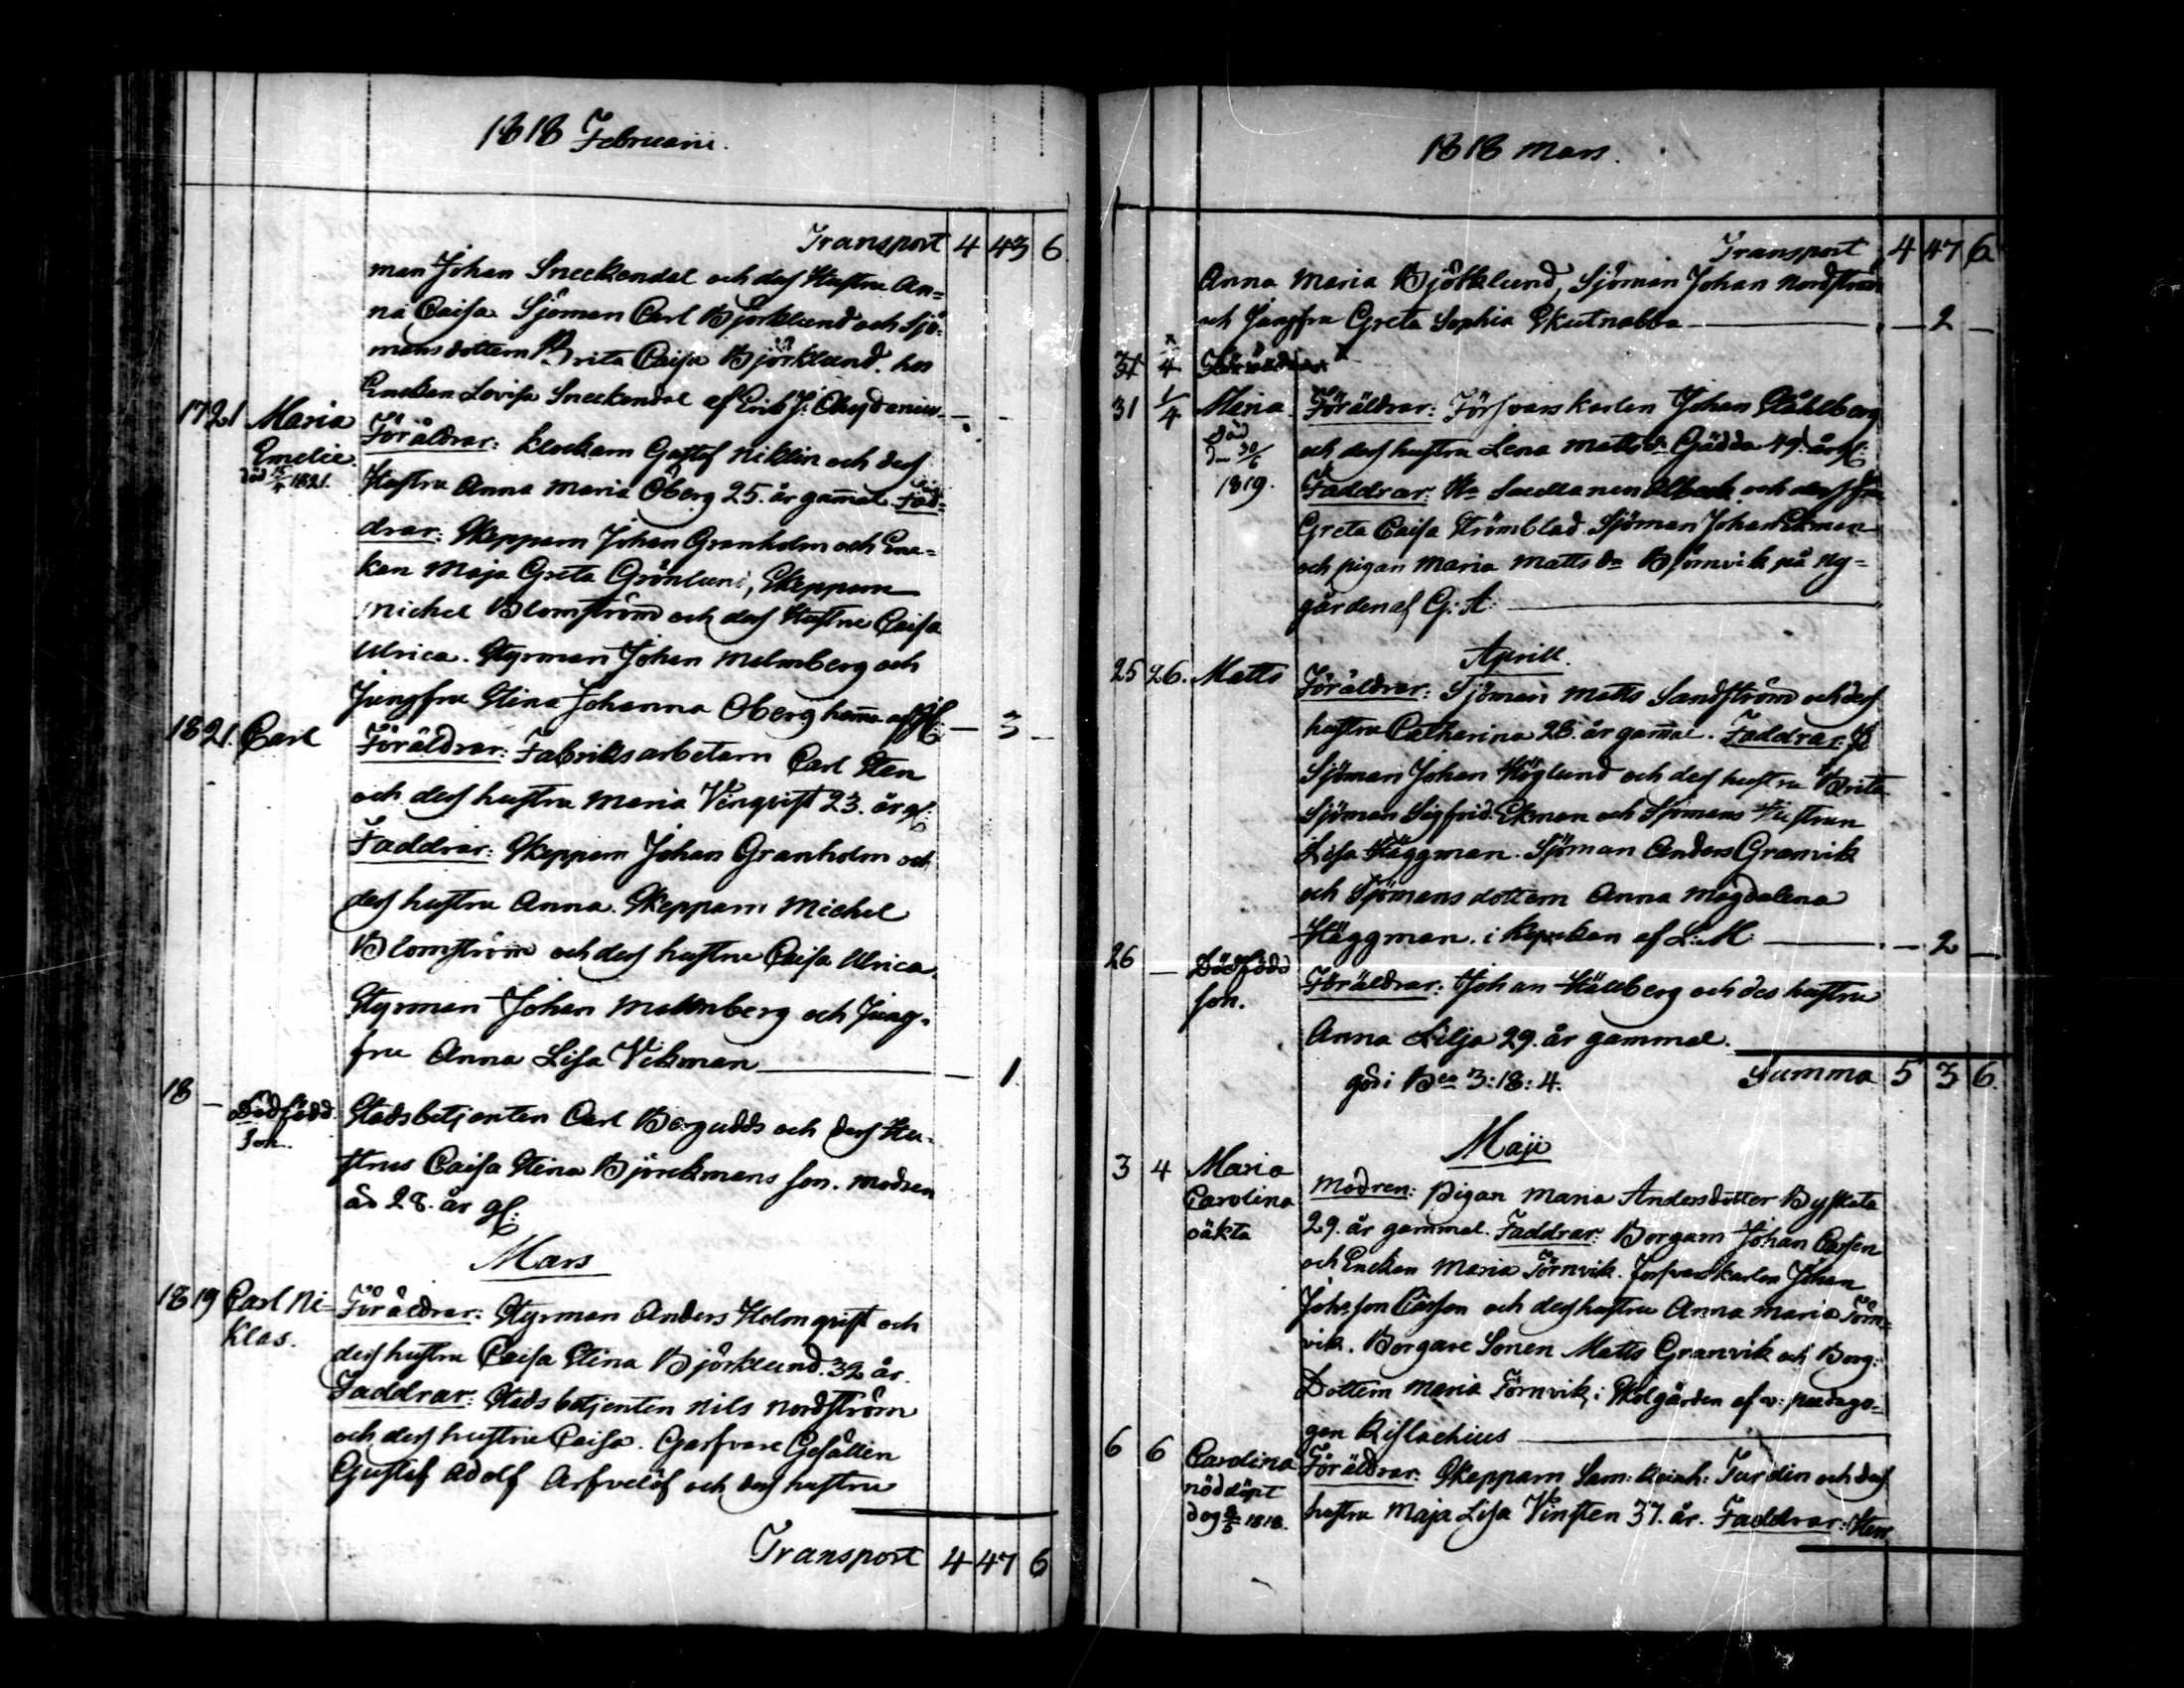 1818 Februarii.
Transport 4 43 6
man Johan Sneckendal och dess Hustru An=
na Caisa Sjöman Carl Björklund och Sjö=
mans dottern Brita Caisa Björklund. hos
Enckan Lovisa Sneckendal af Erik J. Chydenius — -
17 21 Maria Emelie. död 15/4 1821.
Föräldrar: Klockarn Gustaf Niklin och dess
Hustru Anna Maria Öberg 25. år gammal Fad=
drar: Skepparn Johan Granholm och Enc=
kan Maja Greta Grönlund, Skepparn
Michel Blomström och dess Hustru Caisa
Ulrica. Styrman Johan Malmberg och
Jungfru Stina Johanna Öberg hemma af — 3 —
18 21. Carl
Föräldrar: Fabriksarbetarn Carl Sten
och dess hustru Maria Vinqvist 23. år gl:
Faddrar: Skepparn Johan Granholm och
dess hustru Anna. Skepparn Michel
Blomström och dess hustru Caisa Ulrica.
Styrman Johan Malmberg och Jung=
fru Anna Lisa Vikman — 1.
18 — Dödfödd Son.
Stadsbetjenten Carl Bergudds och dess Hu=
strus Caisa Stina Björckmans son. modren
äd 28. år gl:
Mars
18 19 Carl Ni=
klas.
Föräldrar: Styrman Anders Holmqvist och
dess hustru Caisa Stina Björklund. 32 år.
Faddrar: Stadsbetjenten Nils Nordström
och dess hustru Caisa. Garfvare Gesällen
Gustaf Adolf Arfvelöf och dess hustru
Transport 4 47 6
1818 Mars.
Transport 4 47 6
Anna Maria Björklund, Sjöman Johan Nordström
och Jungfru Greta Sophia Skutnabba — 2 —
31 4
31 1/4 Mina. död d. 30/6 1819.
Föräldrar: Försvarskarlen Johan Ståhlberg
och dess hustru Lena Mattsdr Gädda 49. år gl:
Faddrar: Albeck och dess fru
Greta Caisa Strömblad. Sjöman Johan Ekman
och pigan Maria Matts dr Björnvik på Ny=
gården af G: A: —
Aprill.
25 26. Matts
Föräldrar: Sjöman Matts Sandström och dess
hustru Catharina 28. år gammal. Faddrar:
Sjöman Johan Höglund och dess hustru Brita
Sjöman Sigfrid Ekman och Sjömans Hustrun
Lisa Häggman. Sjöman Anders Granvik
och Sjömans dottern Anna Magdalena
Häggman. i kyrckan af L: M: — 2 —
26 — Dödfödd son.
Föräldrar: Johan Hällberg och des hustru
Anna Lilja 29. år gammal.
giör i Bco 3: 18: 4. Summa 5 3 6.
Maji
3 4 Maria Carolina oäkta
Modren: Pigan Maria Andersdotter Byskata
29. år gammal. Faddrar: Borgarn Johan Carsen
och Enckan Maria Törnvik. Forsvarskarlen Johan
Johsson Carsson och dess hustru Anna Maria Törn=
vik. Borgare Sonen Matts Granvik och Borg:
Dottern Maria Törnvik, i Skolgården af v: pædago=
gen Rislachius —
6 6 Carolina nöddöpt dog 9/5 1818.
Föräldrar: Skepparn Sam: Reinh: Turdin och dess
hustru Maja Lisa Vinsten 37. år. Faddrar: